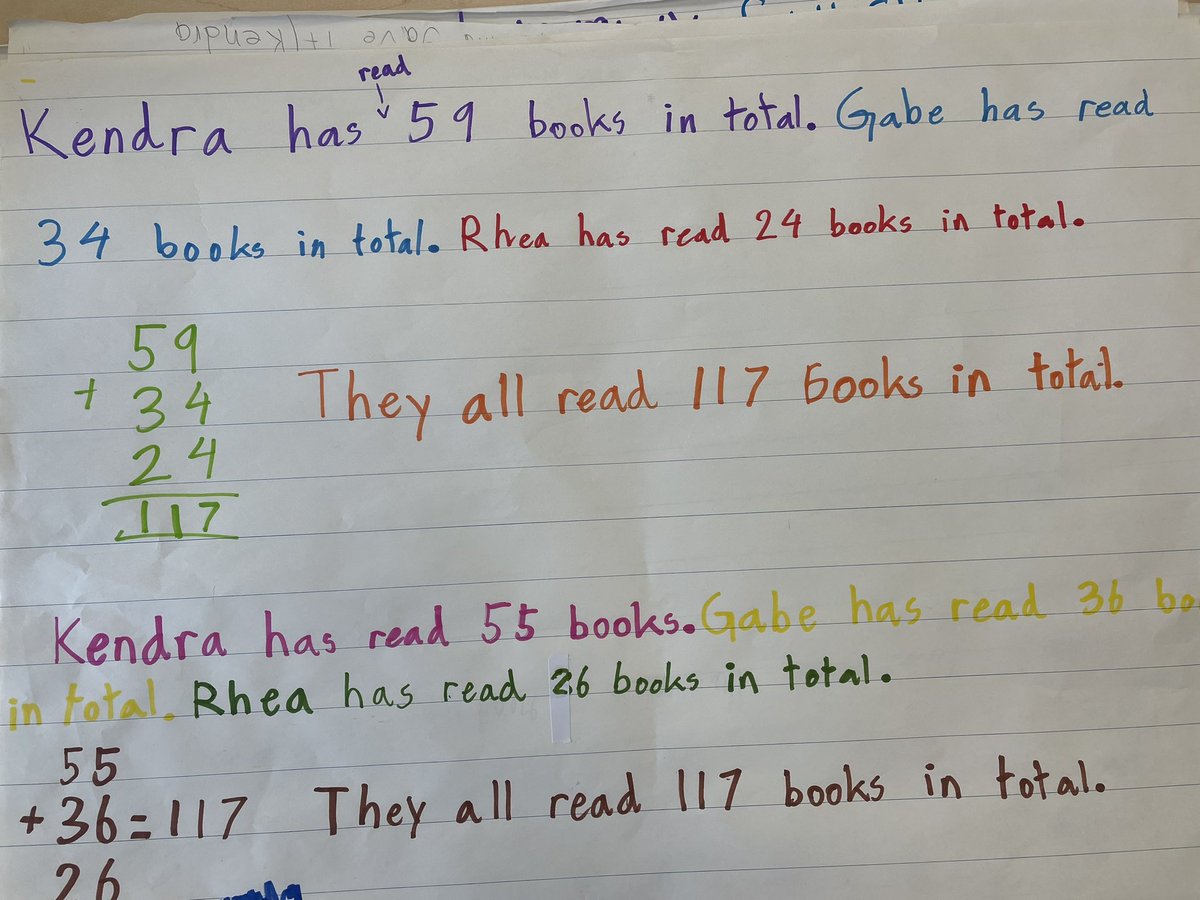 read
Kendra has 59 books in total. Gabe has read
34 books in total. Rhea has read 24 books in total.
59
+ 34
24
117
They all read 117 books in total.
Kendra has read 55 books. Gabe has read 36 bo
in total. Rhea has read 26 books in total.
55
+ 36 = 117 They all read 117 books in total.
26